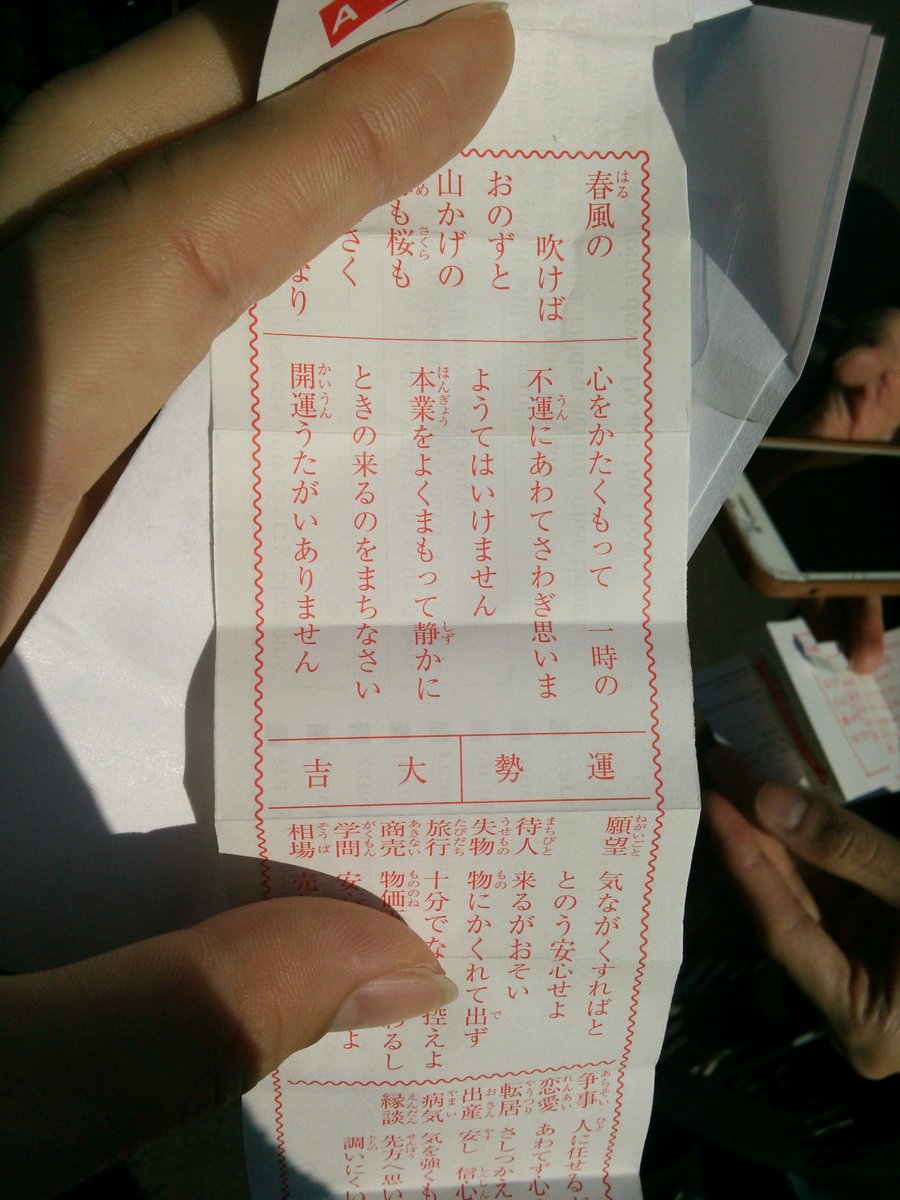 A
春風の
吹けば
おのずと
山かげの
も桜も
さく
なり
心をかたくもって 一時の
不運にあわてさわぎ思いま
ようてはいけません
本業をよくまもって静かに
ときの来るのをまちなさい
開運うたがいありません
運勢
大吉
願望 気ながくすればと
とのう安心せよ
待人 来るがおそい
失物 物にかくれて出ず
旅行 十分でな 控えよ
商売 物価 わるし
学問 安 よ
相場 売
争事 人に任せる
恋愛 あわてず心
転居 さしつかえ
出産 安し 信心
病気 気を強くも
縁談 先方へ思い
調いにくい